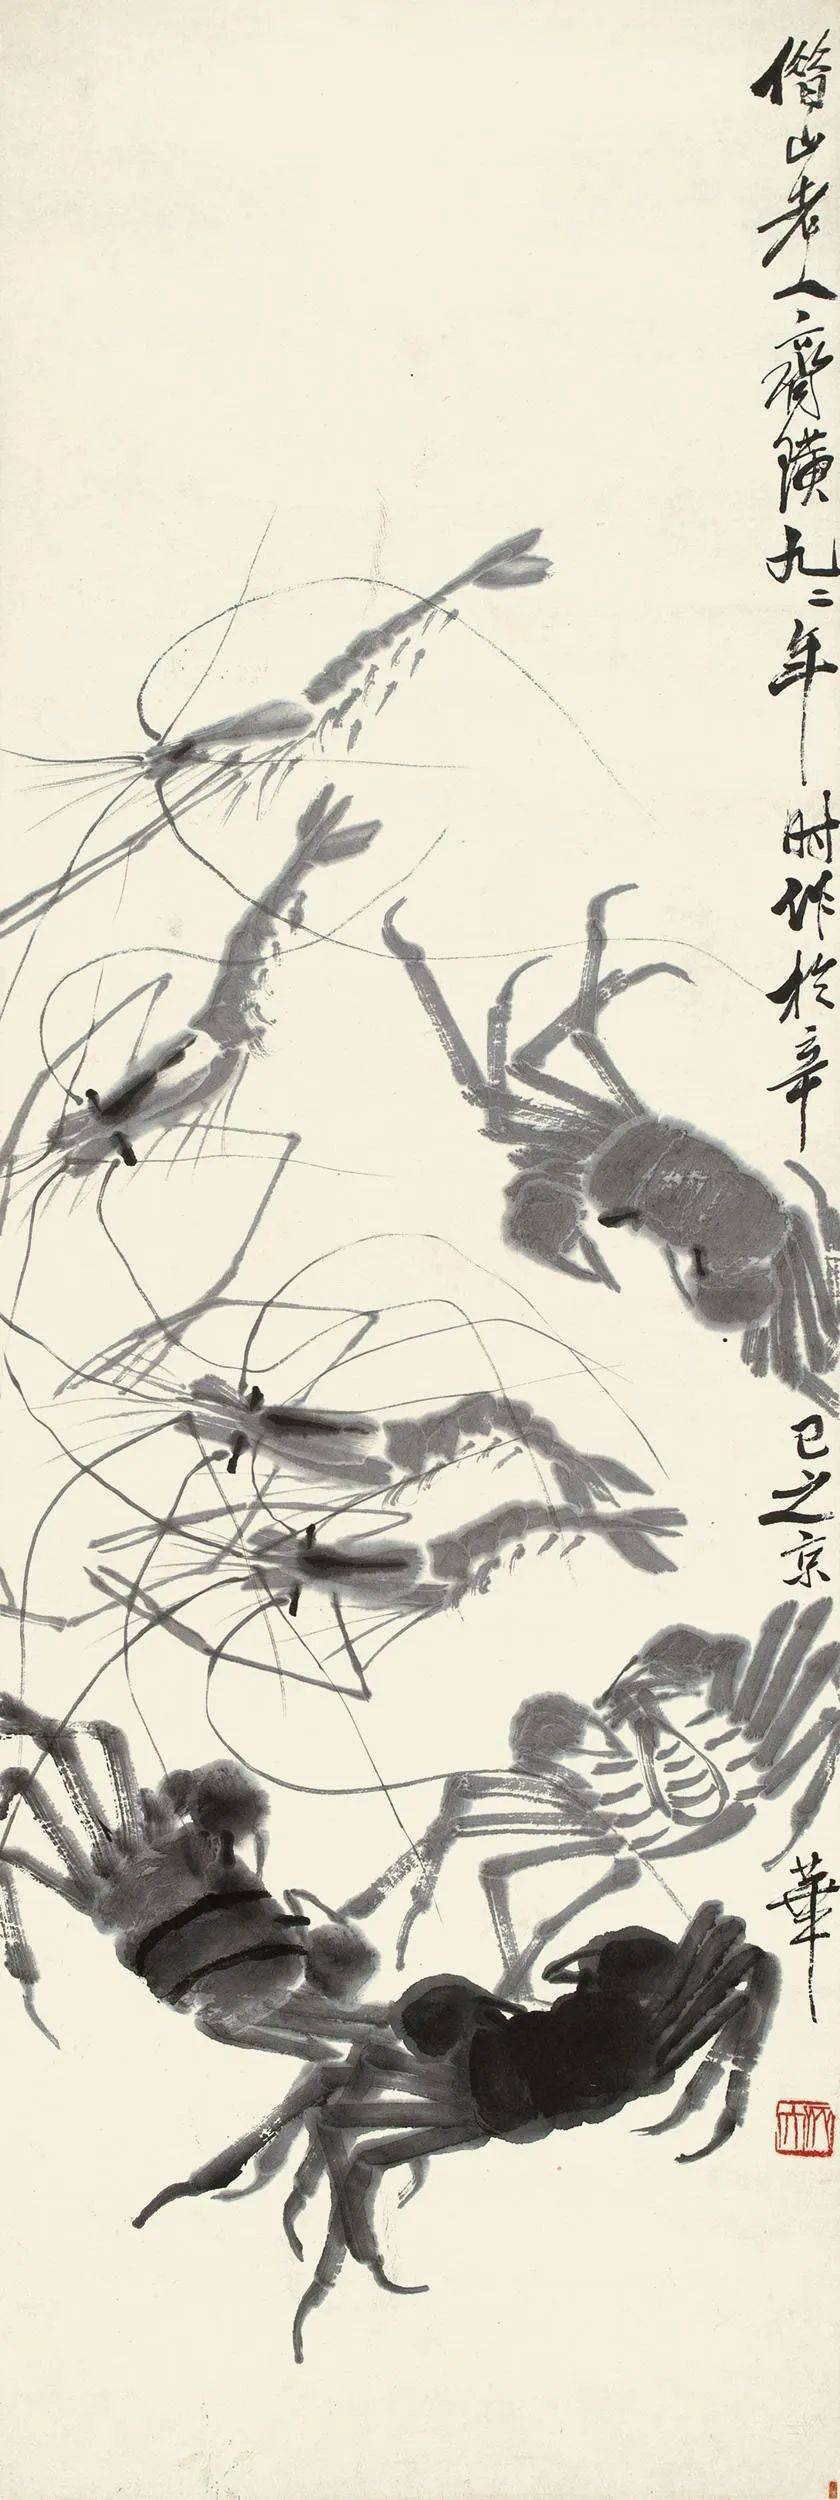 借山老人齊璜九二年时作於辛巳之京華